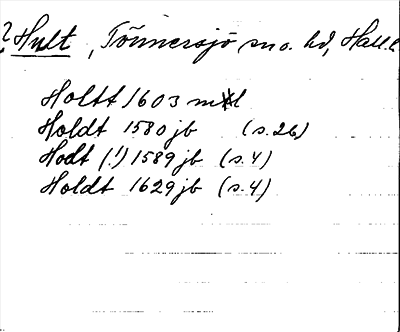 ? Hult, Tönnersjö sn o. hd, Hall.
Holtt 1603 mtl
Holdt 1580 jb (s. 26)
Hodt (!) 1589 jb (s. 4)
Holdt 1629 jb (s. 4)